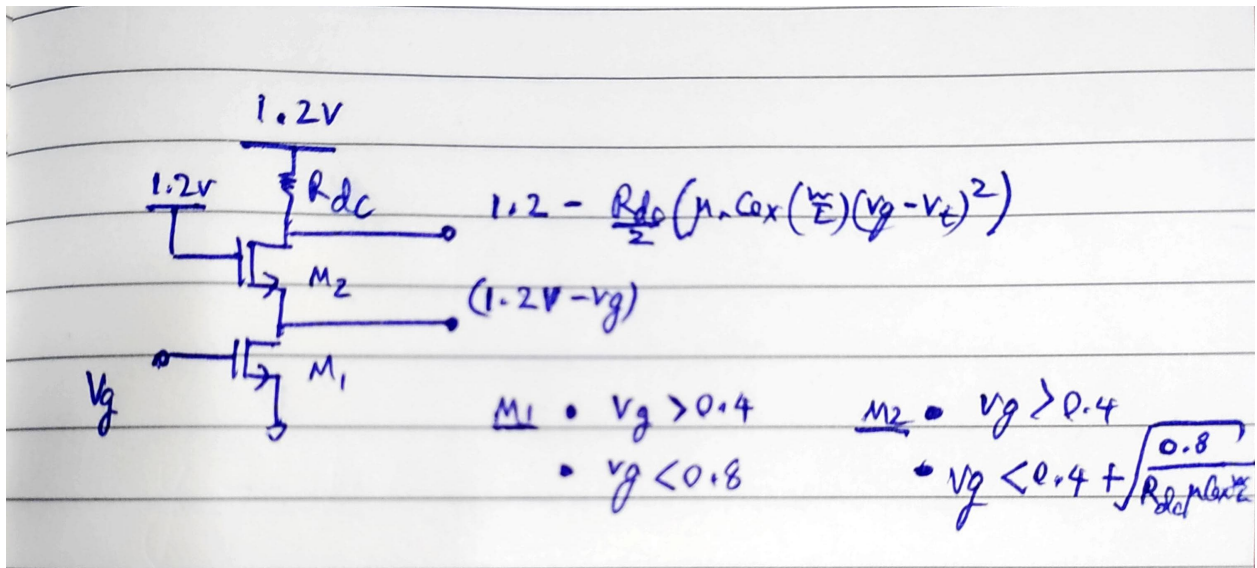 1.2V
1.2V
Rdc
1.2 - Rdc/2 (μnCox(W/L)(Vg-Vt)²)
M2
(1.2V-Vg)
Vg
M1
M1 • Vg > 0.4
• Vg < 0.8
M2 • Vg > 0.4
• Vg < 0.4 + √(0.8/(Rdc μCox W/L))